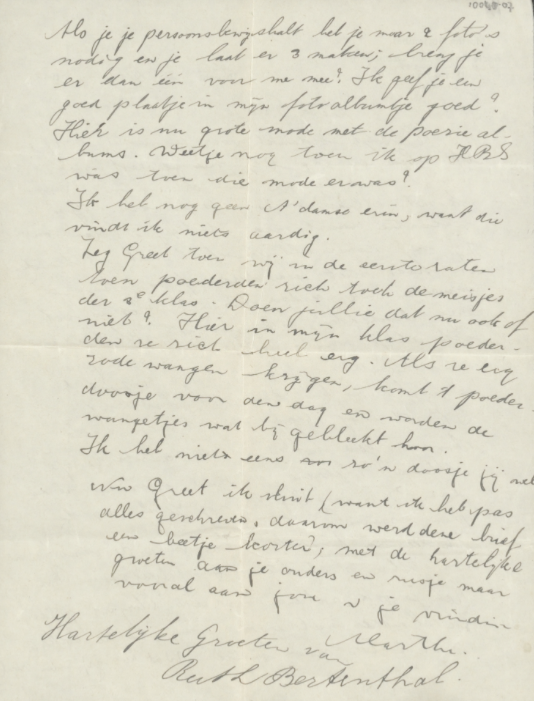 Als je je persoonsbewijs halt heb je maar 2 foto's
nodig en je laat er 3 maken; breng je
er dan één voor me mee? Ik geef je een
goed plaatje in mijn fotoalbumtje goed?
Hier is nu grote mode met de poesie al-
bums. Weet je nog toen ik op HBS
was toen die mode er was?
Ik heb nog geen A'damse erin, want die
vindt ik niets aardig.
Zeg Greet toen wij in de eerste zaten
toen poederden zich toch de meisjes
der 2e klas. Doen jullie dat nu ook of
niet? Hier in mijn klas poeder-
den ze zich heel erg. Als ze erg
rode wangen krijgen, komt 't poeder-
doosje voor den dag en worden de
wangetjes wat bij gebleekt hoor.
Ik heb niets eens zo'n doosje jij wel
Nu Greet ik sluit (want ik heb pas
alles geschreven, daarom werd deze brief
een beetje korter, met de hartelijke
groeten aan je ouders en zusje maar
vooral aan jou v je vriendin
Martha.
Hartelijke Groeten van
Ruth Bertenthal.